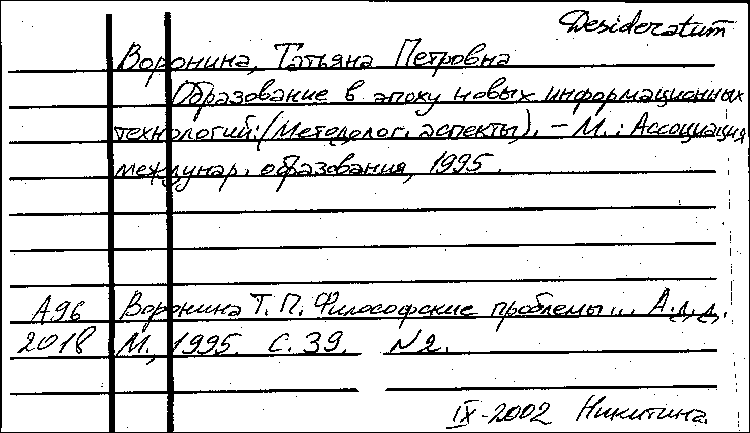 Desideratum
Воронина, Татьяна Петровна
Образование в эпоху новых информационных
технологий: (Методолог. аспекты). – М. : Ассоциация
междунар. образования, 1995.
А96 Воронина Т. П. Философские проблемы... А.д.д.
2018 М., 1995. С. 39. №2.
IX-2002 Никитина.